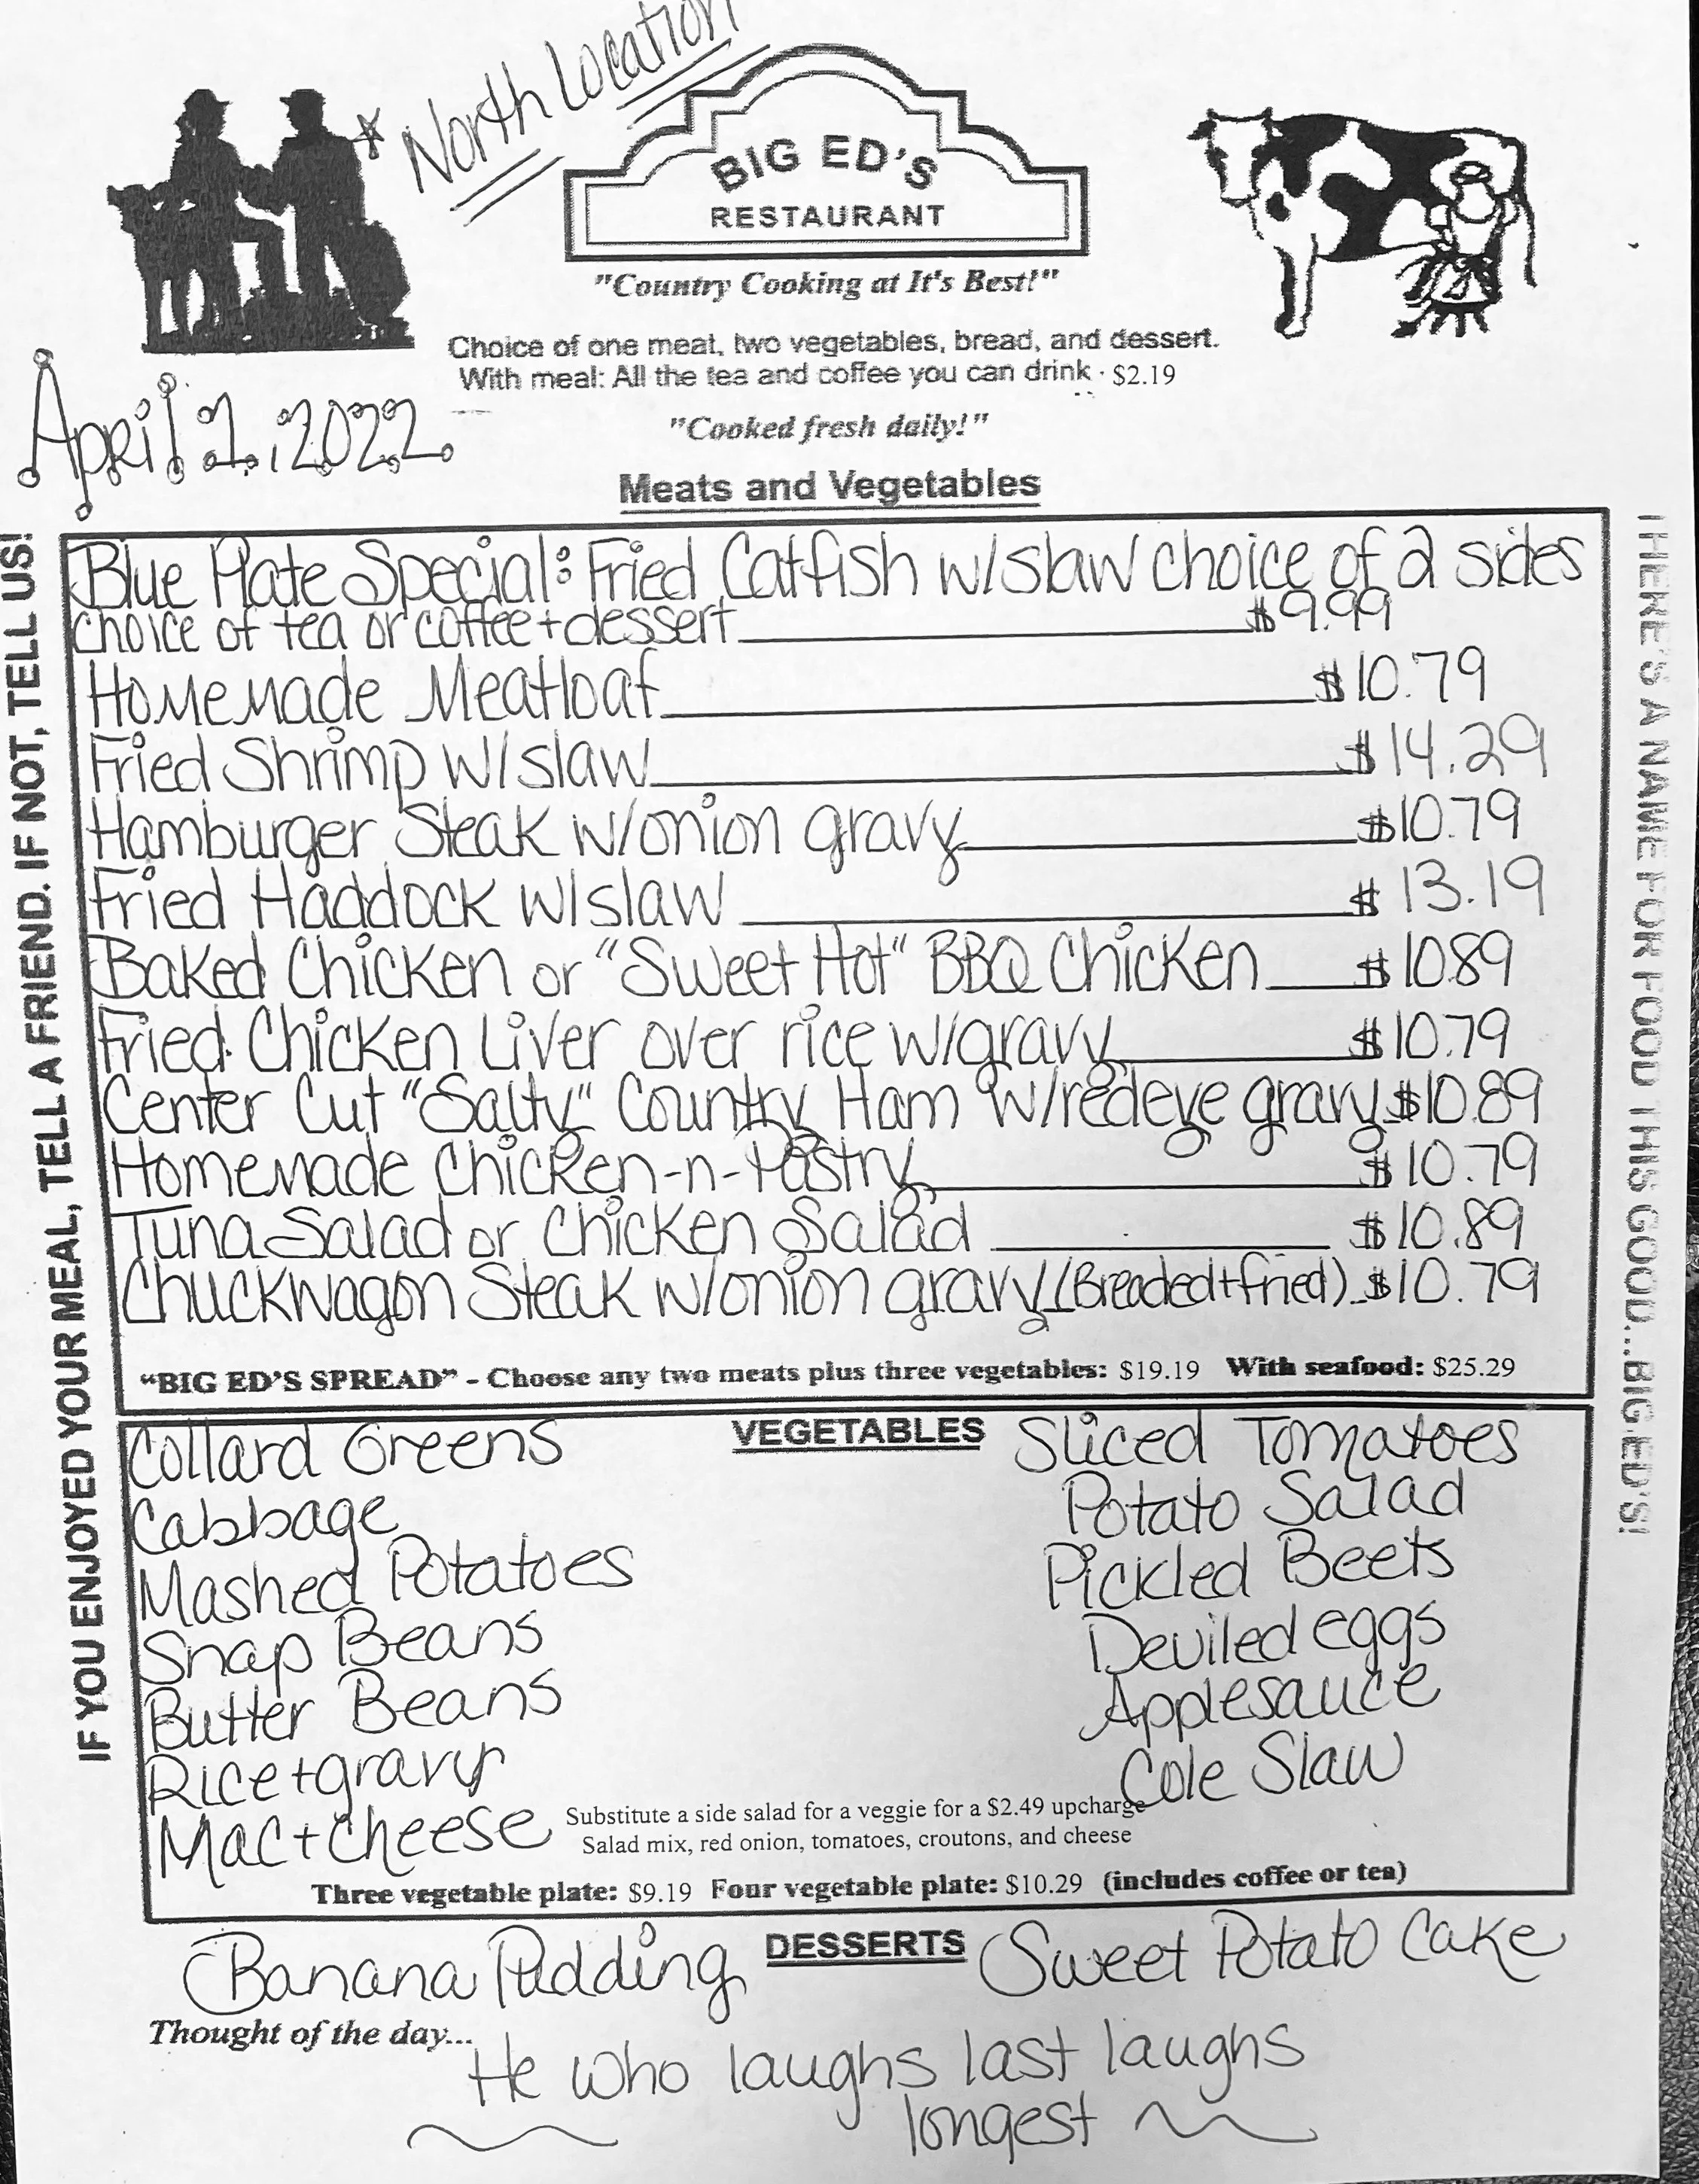 North Location
BIG ED'S
RESTAURANT
"Country Cooking at It's Best!"
Choice of one meat, two vegetables, bread, and dessert.
With meal: All the tea and coffee you can drink · $2.19
April 1, 2022
"Cooked fresh daily!"
Meats and Vegetables
IF YOU ENJOYED YOUR MEAL, TELL A FRIEND. IF NOT, TELL US!
THERE'S A NAME FOR FOOD THIS GOOD...BIG ED'S!
Blue Plate Special: Fried Catfish w/slaw choice of 2 sides
choice of tea or coffee + dessert $9.99
Homemade Meatloaf $10.79
Fried Shrimp w/slaw $14.29
Hamburger Steak w/onion gravy $10.79
Fried Haddock w/slaw $13.19
Baked Chicken or "Sweet Hot" BBQ Chicken $10.89
Fried Chicken Liver over rice w/gravy $10.79
Center Cut "Salty" Country Ham w/redeye gravy $10.89
Homemade Chicken-n-Pastry $10.79
Tuna Salad or Chicken Salad $10.89
Chuckwagon Steak w/onion gravy (Breaded + fried) $10.79
"BIG ED'S SPREAD" - Choose any two meats plus three vegetables: $19.19 With seafood: $25.29
VEGETABLES
Collard Greens
Cabbage
Mashed Potatoes
Snap Beans
Butter Beans
Rice + gravy
Mac + cheese
Sliced Tomatoes
Potato Salad
Pickled Beets
Deviled eggs
Applesauce
Cole Slaw
Substitute a side salad for a veggie for a $2.49 upcharge
Salad mix, red onion, tomatoes, croutons, and cheese
Three vegetable plate: $9.19 Four vegetable plate: $10.29 (includes coffee or tea)
DESSERTS
Banana Pudding
Sweet Potato Cake
Thought of the day...
He who laughs last laughs
longest